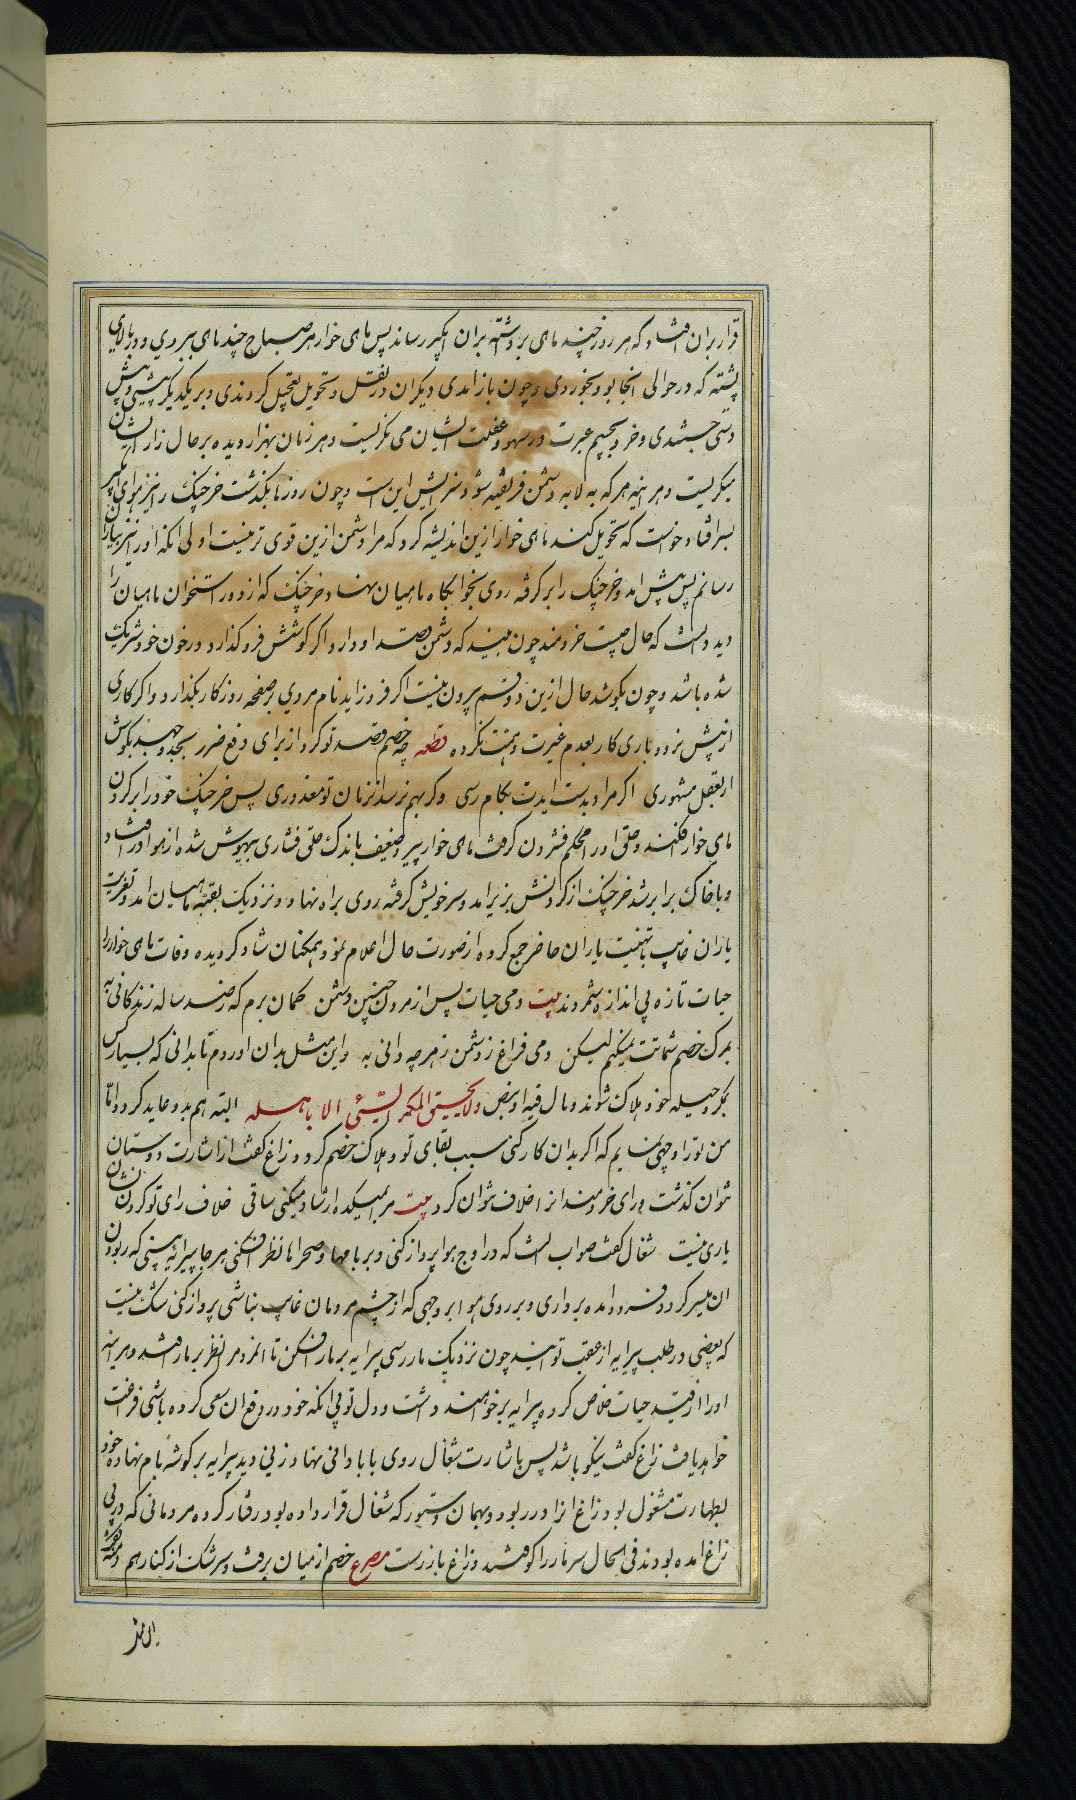 قرار بران افتاد که هر روز چند ماهی برداشته بران آبگیر رساند پس ماهی خوار هر صباح چند ماهی ببردی و در بالای
پشته که در حوالی انجا بود بخوردی و چون باز امدی دیگران در نقل و تحویل تعجیل کردندی و بر یکدیگر پیشی و پیش
دستی جستندی و خرد بچشم عبرت در سهو و غفلت ایشان می نگریست و هر زمان بهزار دیده بر حال زار ایشان
میگریست و هر اینه هر که به لابه دشمن فریفته شود سزایش این است و چون روزها بگذشت خرچنگ را نیز هوای آبگیر
بسر افتاد و خواست که تحویل کند ماهی خوار ازین اندیشه کرد که مرا دشمن ازین قوی تر نیست اولی انکه او را نیز بیاران
رسانم پس پیش امد و خرچنگ را بر گرفته روی بخوابگاه ماهیان نهاد خرچنگ که از دور استخوان ماهیان را
دید دانست که حال چیست خردمند چون بیند که دشمن قصد او دارد اگر کوشش فرو گذارد در خون خود شریک
شده باشد و چون بکوشد حال ازین دو قسم بیرون نیست اگر فیروز اید نام مردی بر صفحه روزگار بگذارد و اگر کاری
از پیش نرود باری کار بعدم غیرت و همت نکرده قطعه چه خصم قصد تو کرد از برای دفع ضرر بجد و جهد بکوش
ار بعقل مشهوری اگر مراد بدست ایدت بکام رسی و گر بهم نرسد انزمان تو معذوری پس خرچنگ خود را بر گردن
ماهی خوار افکند و حلق او را محکم فشردن گرفت ماهی خوار پیر و ضعیف باندک حلق فشاری بیهوش شده از هوا در افتاد
و با خاک برابر شد خرچنگ از گردنش بزیر امد و سر خویش گرفته روی براه نهاد و نزدیک بقیه ماهیان امد و تعزیت
یاران غایب با تهنیت یاران حاضر جمع کرده از صورت حال اعلام نمود همکنان شاد گردیده وفات ماهی خوار را
حیات تازه بی اندازه شمردند بیت دمی حیات پس از مردن چنین دشمن گمان برم که ز صد ساله زندگانی به
بمرک خصم شماتت نمیکنم لیکن دمی فراغ ز دشمن ز هر چه دانی به و این مثل بدان اوردم تا بدانی که بسیار کس
بمکر و حیله خود هلاک شوند و مال فیه او بنص و لا یحیق المکر السیئ الا باهله البته هم بدو عاید گردد اما
من تو را وجهی نمایم که اگر بدان کار کنی سبب بقای تو و هلاک خصم گردد زاغ گفت از اشارت دوستان
نتوان گذشت و رای خردمندانرا خلاف نتوان کرد بیت مرا بمیکده ارشاد میکنی ساقی خلاف رای تو کردن نشان
یاری نیست شغال گفت صواب انست که در اوج هوا پرواز کنی و بر بامها و صحراها نظر افکنی هر جا پیرایه بینی که ربودن
ان میسر گردد فرود امده برداری و بر روی هوا بر وجهی که از چشم مردمان غایب نباشی پرواز کنی شک نیست
که بعضی در طلب پیرایه از عقب تو ایند چون نزدیک مار رسی پیرایه بر مار افکن تا انمردم را نظر بر مار افتد و هر اینه
او را از قید حیات خلاص کرده پیرایه بر خواهند داشت و دل تو بی انکه خود در دفع ان سعی کرده باشی فراغت
خواهد یافت زاغ گفت نیکو باشد پس باشارت شغال روی بابادانی نهاد زنی دید پیرایه بر گوشه بام نهاده خود
بطهارت مشغول بود زاغ انرا در ربود و بهمان دستور که شغال قرار داده بود رفتار کرده مردمانی که در پی
زاغ امده بودند فی الحال سر مار را کوفتند و زاغ باز رست مصرع خصم از میان برفت و سرشک از کنار هم